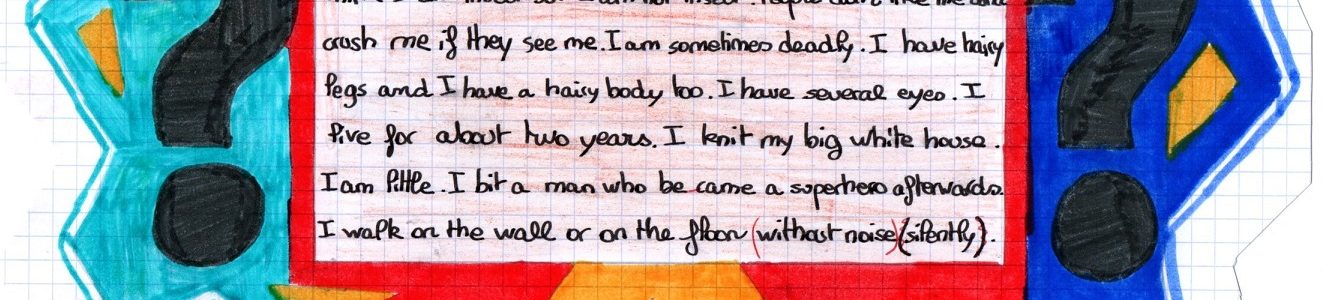 crush me if they see me. I am sometimes deadly. I have hairy
legs and I have a hairy body too. I have several eyes. I
live for about two years. I knit my big white house.
I am little. I bit a man who be came a superhero afterwards.
I walk on the wall or on the floor (without noise) (silently).